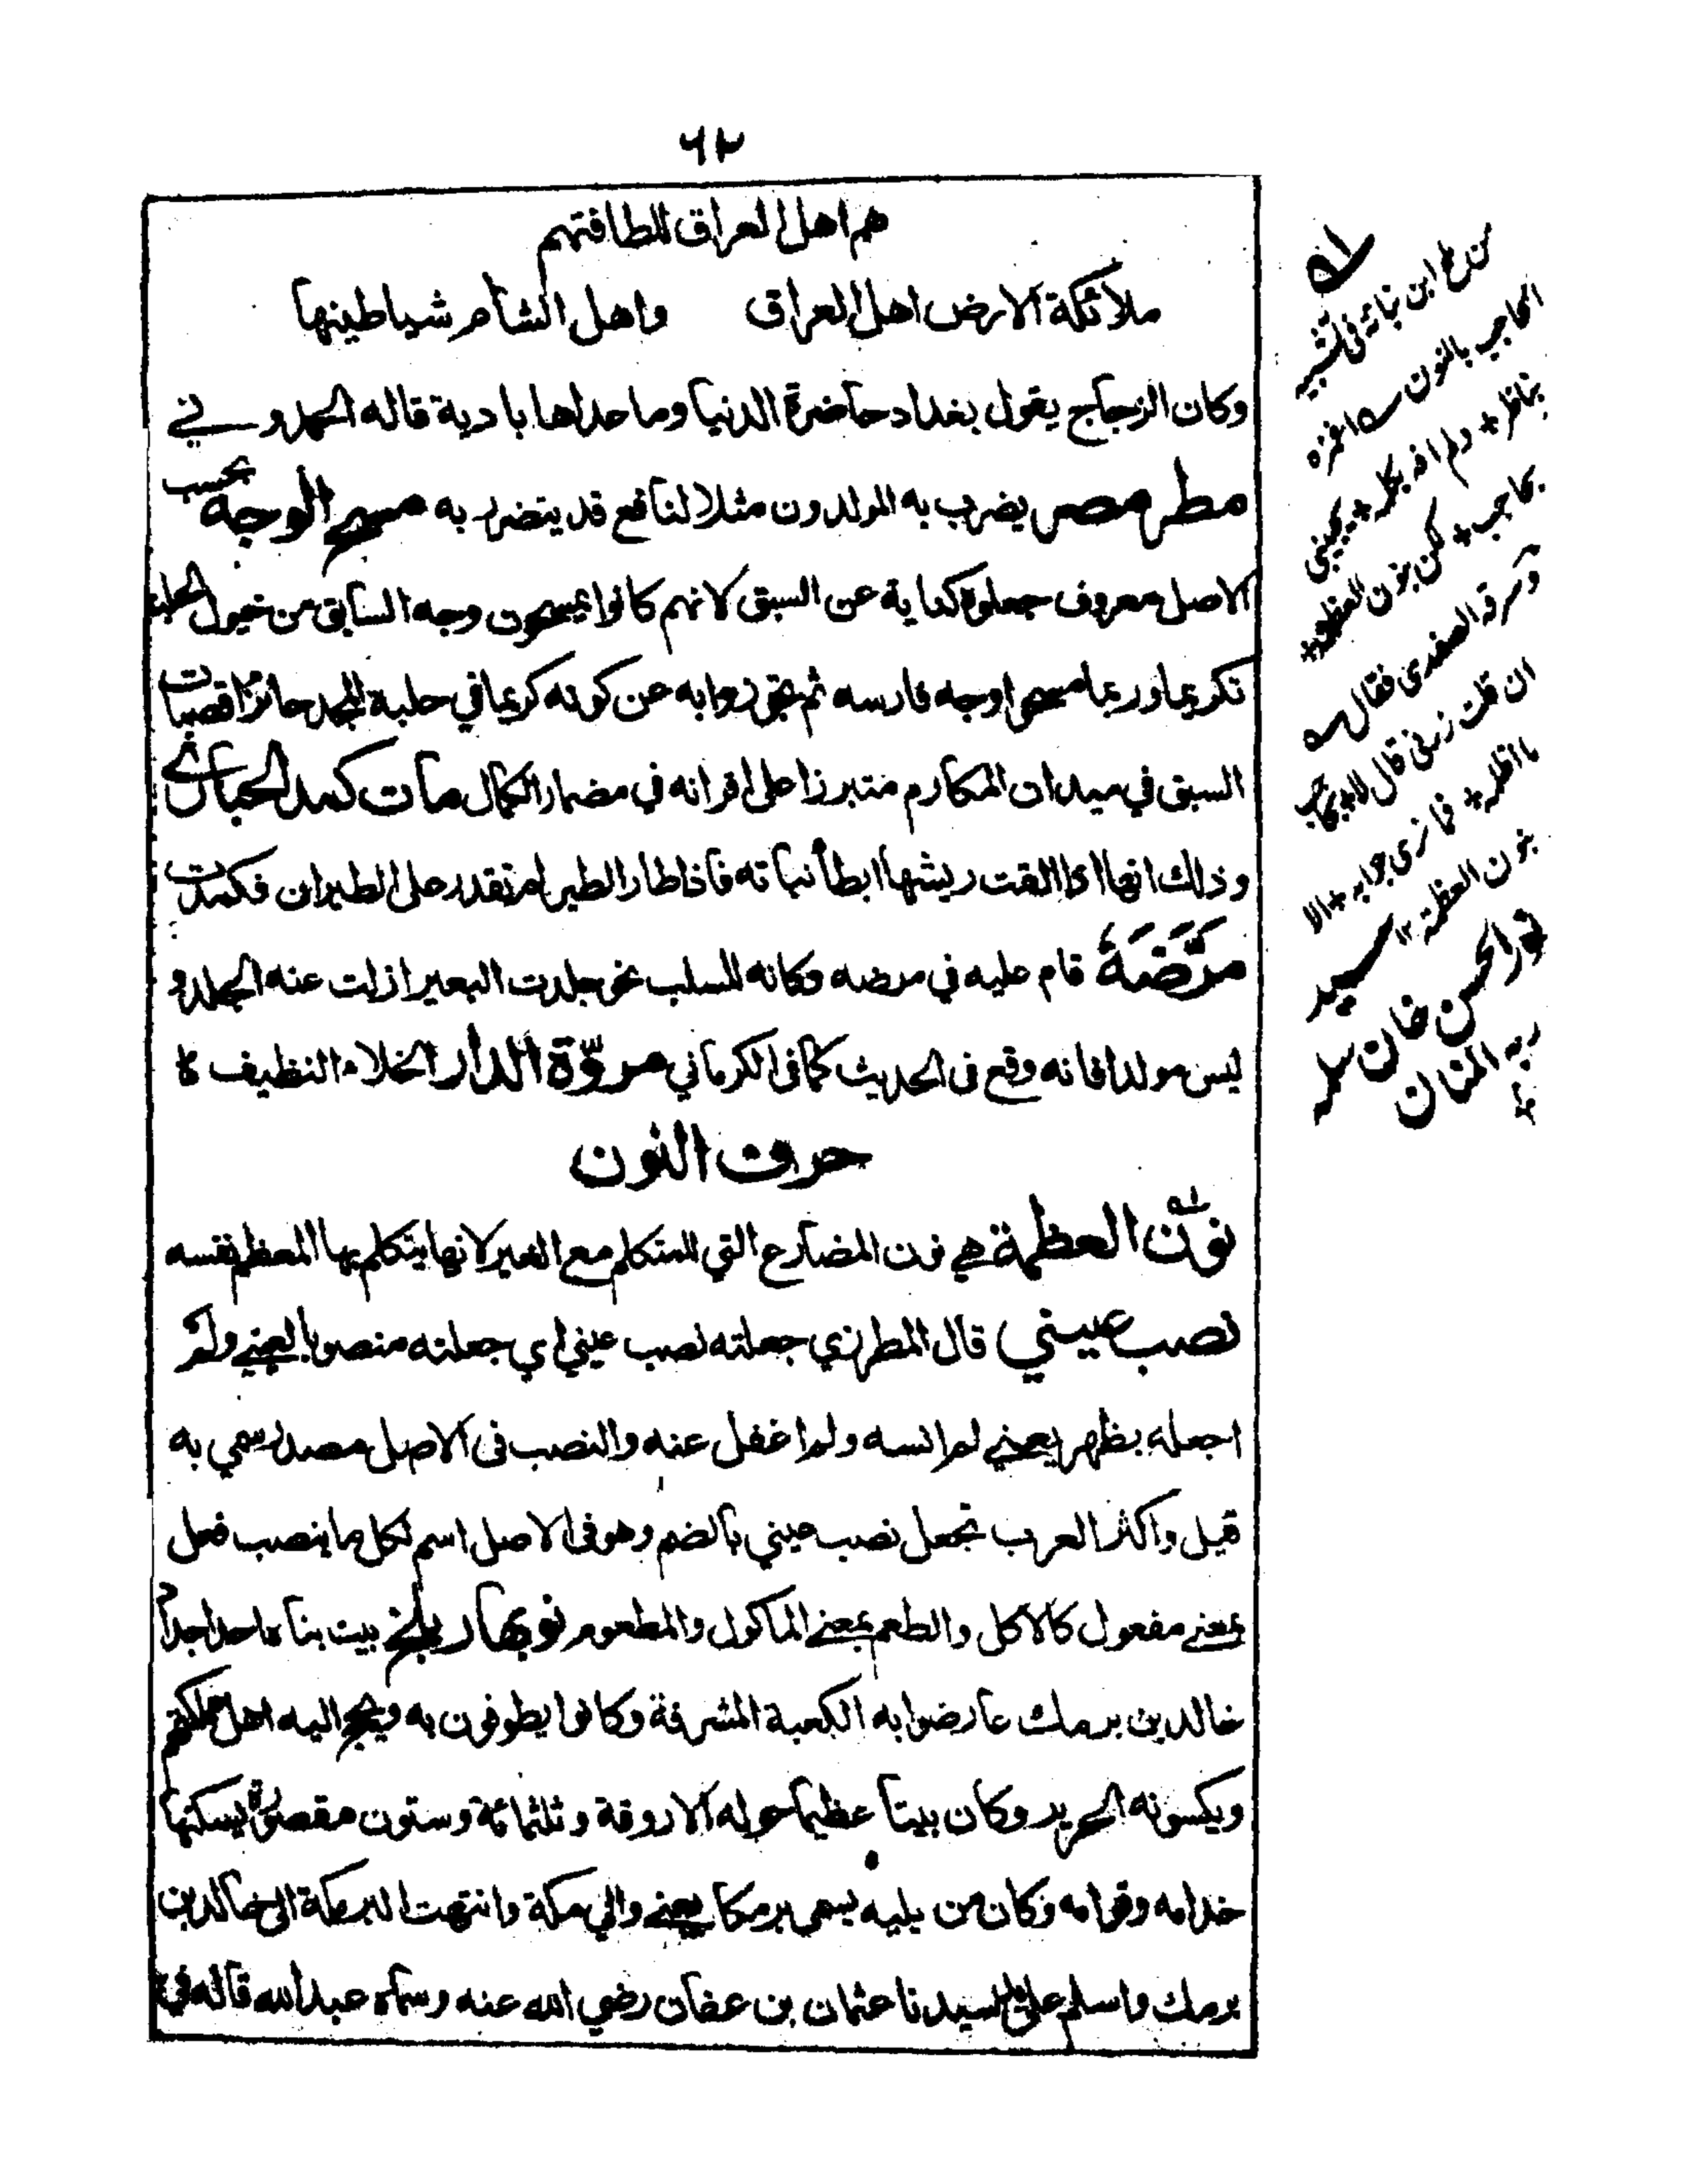 ٦٢
هم اهل العراق للطافتهم
ملائكة الارض اهل العراق واهل الشأم شياطينها
وكان الزجاج يقول بغداد حاضرة الدنيا وما عداها بادية قاله الحمدوني
مطر مصر يضرب به المولدون مثلا لنافع قد يتضرر به مسح الوجه بحسب
الاصل معروف جعلوه كناية عن السبق لانهم كانوا يمسحون وجه السابق من خيول الحلبة
تكريما وربما مسحوا وجه فارسه ثم تجوزوا به عن كونه كريما في حلبة المجد حائزا قصبات
السبق في ميدان المكارم متبرزا على اقرانه في مضمار الكمال مات كمد الحبارى
وذلك انها اذا القت ريشها ابطأ نباته فاذا طار الطير لم تقدر على الطيران فكمدت
مَرَّضَهُ قام عليه في مرضه وكانه للسلب نحو جلدت البعير ازلت عنه الجلد و
ليس مولدا فانه وقع فى الحديث كما فى الكرماني مروّة الدار الخلاء النظيف
حرف النون
نون العظمة هي نون المضارع التي للمتكلم مع الغير لانها يتكلم بها المعظم نفسه
نصب عيني قال المطرزي جعلته نصب عيني اي جعلته منصوبا لعيني ولم
اجعله بظهر يعني لم انسه ولم اغفل عنه والنصب فى الاصل مصدر سمي به
قيل واكثر العرب تجعل نصب عيني بالضم وهو فى الاصل اسم لكل ما ينصب فعل
بمعنى مفعول كالاكل والطعم بمعنى الماكول والمطعوم نوبهار بلخ بيت بناه احد اجداد
خالد بن برمك عارضوا به الكعبة المشرفة وكانوا يطوفون به ويحج اليه اهل مملكتهم
ويكسونه الحرير وكان بيتا عظيما حوله الاروقة وثلثمائة وستون مقصورة يسكنها
خدامه وقوامه وكان من يليه يسمى برمكا يعني والي مكة وانتهت البرمكة الى خالد بن
برمك واسلم على يد سيدنا عثمان بن عفان رضي الله عنه وسماه عبد الله قاله في
ابن نباتة في تشبيه
الحاجب بالنون
بناظر ولم افه
بحاجب لكن بنون العظمة
وسرقه الصفدي فقال
ان قلت زرني قال لا بحاجب
ما اظلمه فما نرى جوابه الا
بنون العظمة سيد
نور الحسن خان
ربه المنان